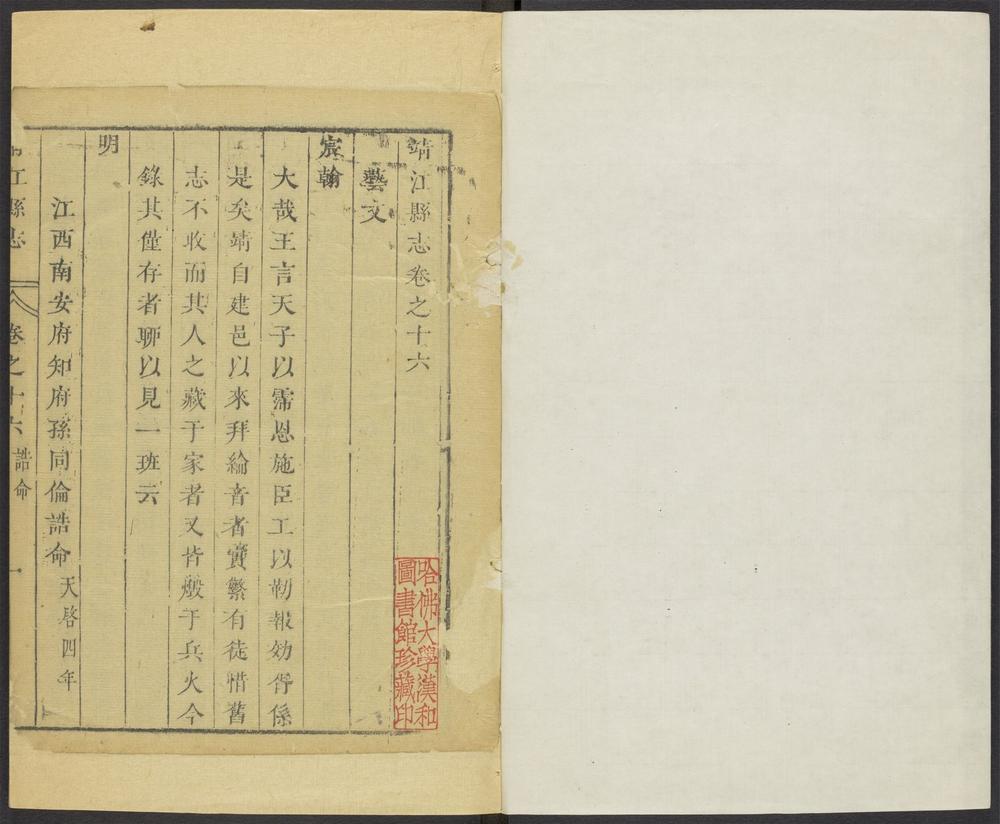 靖江縣志卷之十六
藝文
宸翰
大哉王言天子以霈恩施臣工以勒報効胥係
是矣靖自建邑以來拜綸音者實繁有徒惜舊
志不收而其人之藏于家者又皆燬于兵火今
錄其僅存者聊以見一班云
明
江西南安府知府孫同倫誥命天啓四年
江縣志 卷之十六 誥命 一
哈佛大學漢和
圖書館珍藏印